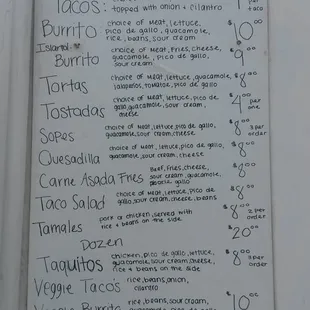 Tacos: topped with onion + cilantro per taco
Burrito choice of meat, lettuce, $10.00
pico de gallo, guacamole,
rice, beans, sour cream
Island Burrito choice of meat, fries, cheese, $9.00
guacamole, pico de gallo,
sour cream
Tortas choice of meat, lettuce, guacamole, $8.00
jalapeños, tomatoe, pico de gallo
Tostadas choice of meat, lettuce, pico de $4.00
gallo, guacamole, sour cream, per
cheese one
Sopes choice of meat, lettuce, pico de gallo, $8.00
guacamole, sour cream, cheese 3 per
order
Quesadilla choice of meat, lettuce, pico de gallo, $8.00
guacamole, sour cream, cheese
Carne Asada Fries Beef, fries, cheese, $8.00
sour cream, guacamole,
pico de gallo
Taco Salad choice of meat, lettuce, pico de $8.00
gallo, sour cream, cheese, beans
Tamales pork or chicken, served with $8.00
rice & beans on the side 2 per
order
Dozen $20.00
Taquitos chicken, pico de gallo, lettuce, $8.00
guacamole, sour cream, cheese, 3 per
rice & beans on the side order
Veggie Taco's rice, beans, onion,
cilantro
Veggie Burrito rice, beans, sour cream, $10.00